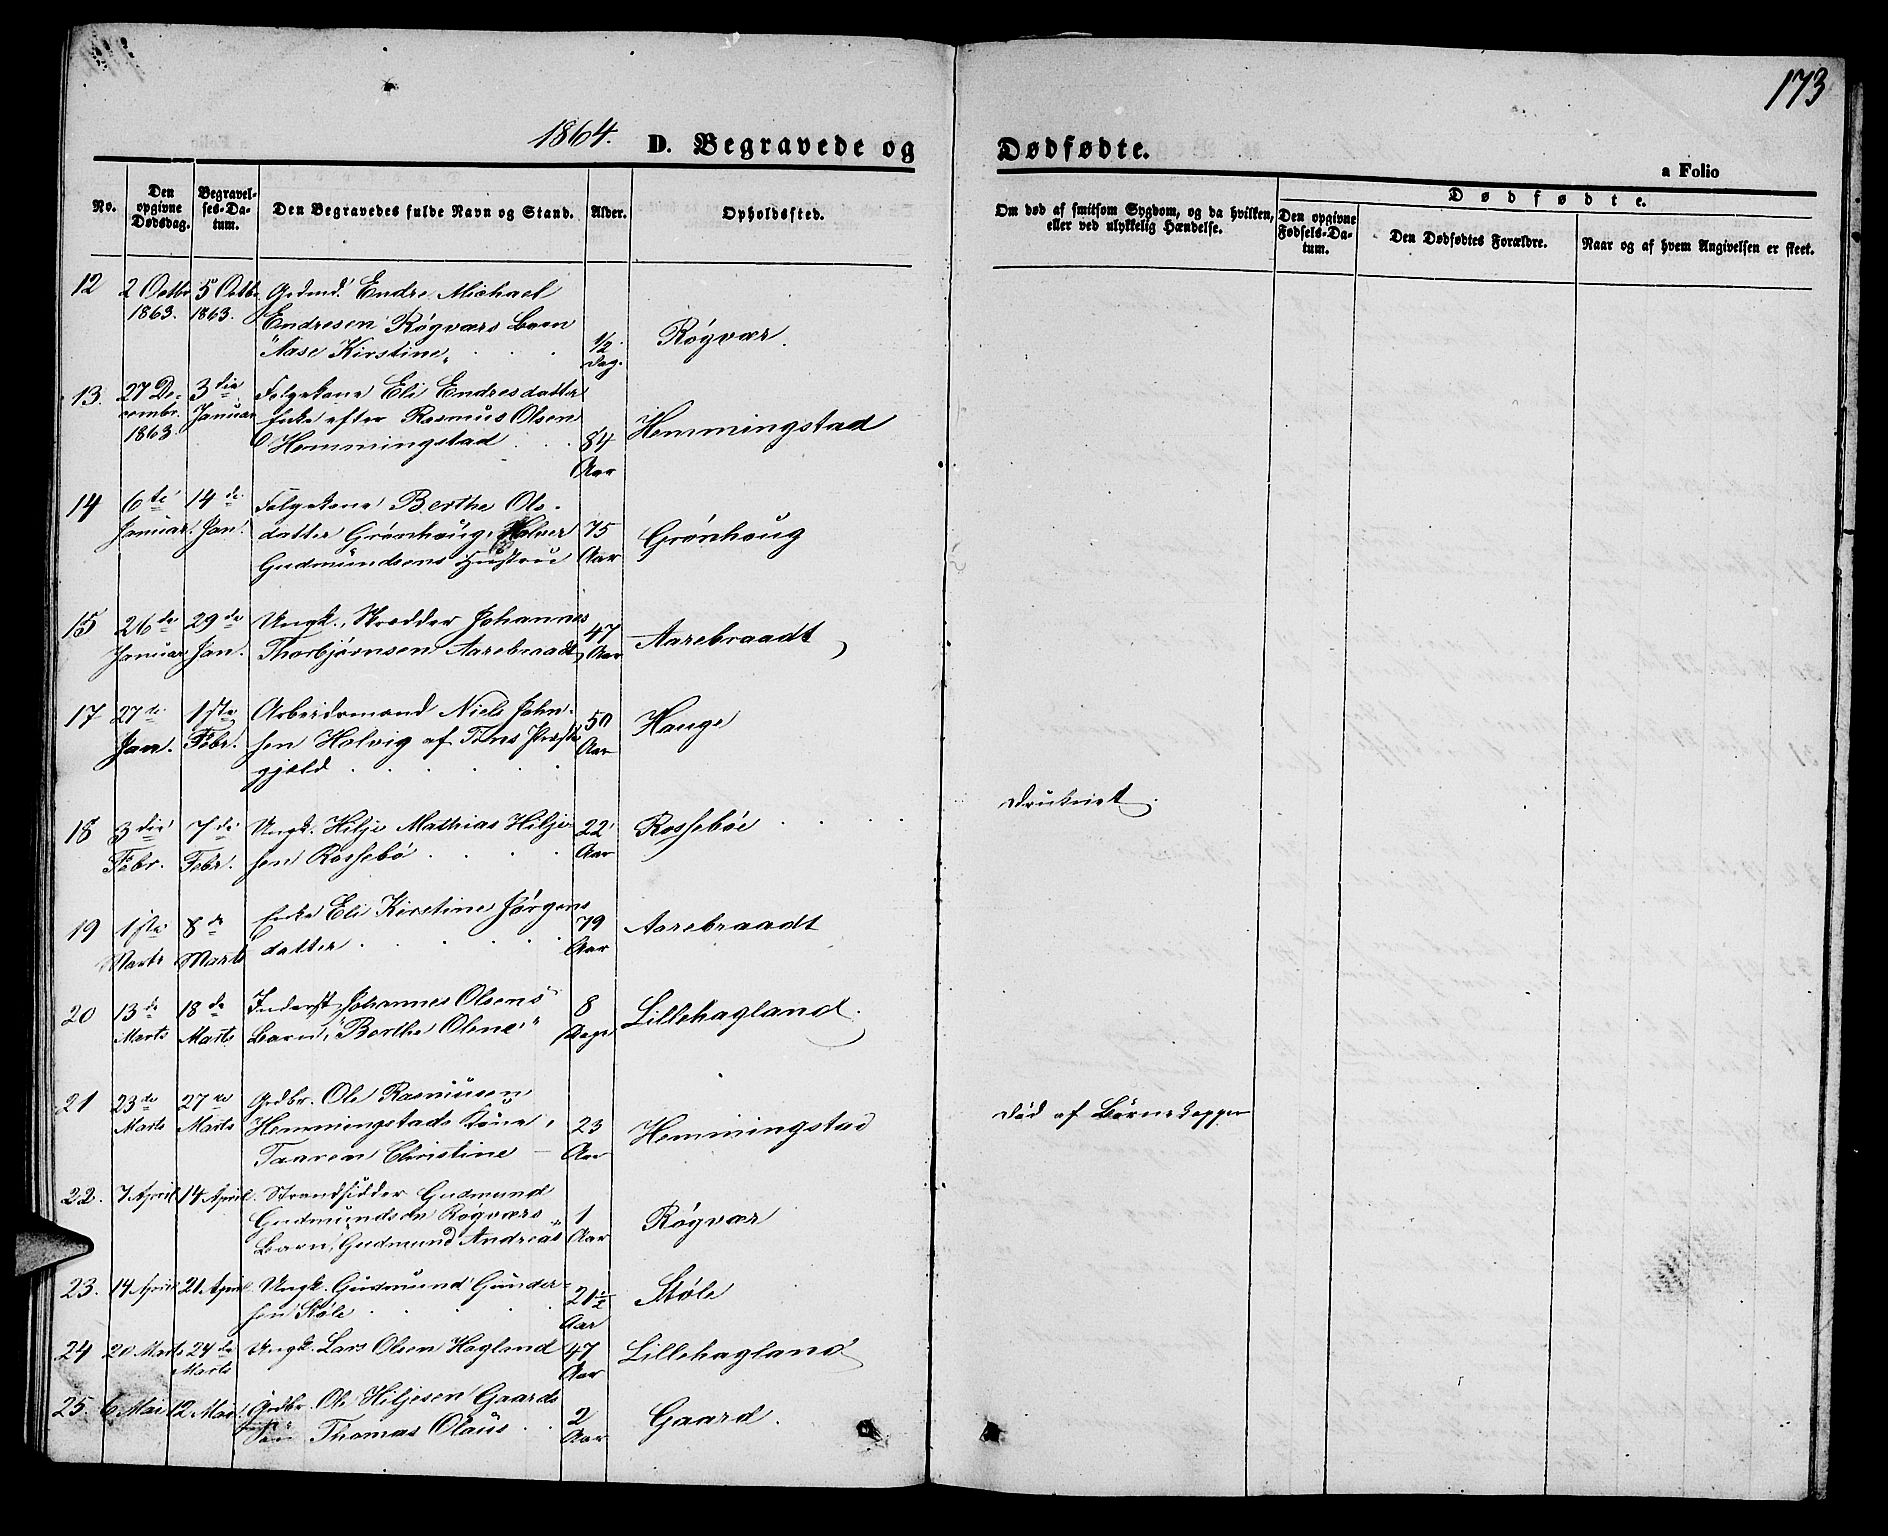 173
1864. D. Begravede og Dødfødte.
a Folio
No.
Den opgivne Dødsdag.
Begravelses-Datum.
Den Begravedes fulde Navn og Stand.
Alder.
Opholdssted.
Om død af smitsom Sygdom, og da hvilken, eller ved ulykkelig Hændelse.
Dødfødte.
Den opgivne Fødsels-Datum.
Den Dødfødtes Forældre.
Naar og af hvem Angivelsen er skeet.
12 2 Octbr 5 Octbr Grdmd. Endre Michael
1863. 1863. Endresen Røgværs Barn
"Aase Kirstine" 1/2 Dag. Røgvær.
13. 27 De- 3die Folgekone Eli Endresdatter
cembr. Januar Enke efter Rasmus Olsen
1863. Hemmingstad 84 Aar Hemmingstad
14 6te 14de Folgekone Berthe Ols-
Januar. Jan. datter Grønhoug, Halver 75 Grønhoug
Gudmundsens Hustrue Aar
15 26de 29de Ungk. Skrædder Johannes 47 Aarebraadt
Januar Jan. Thorbjørnsen Aarebraadt, Aar
17 27de 1ste Arbeidsmand Niels John- 50 Hauge
Jan. Febr. sen Halvig af Tins Præste- Aar
gjeld
18 3die 7de Ungk. Hilje Mathias Hilje- 22 Rossebøe druknet.
Febr. Febr. sen Rossebø Aar
19 1ste 8de Enke Eli Kirstine Jørgens 79 Aarebraadt
Marts Marts datter Aar
20 13de 18de Inderst Johannes Olsens 8 Lillehagland.
Marts Marts Barn, "Berthe Oline" Dage
21 23de 27de Grdbr. Ole Rasmusen
Marts Marts Hemmingstads Kone, 23 Hemmingstad Død af Børnekopper
Taaren Christine Aar
22. 7 April 14 April. Strandsidder Gudmund
Gudmundsen Røgværs 1 Røgvær
Barn, "Gudmund Andreas" Aar
23. 14 April 21 April Ungk. Gudmund Gunder- 21 1/2 Støle
sen Støle Aar
24 20 Marts 24de Ungk. Lars Olsen Hagland 47 Lillehagland
Marts Aar
25. 6 Mai 12 Mai. Grdbr. Ole Hiljesen Gaards 2 Gaard.
Søn "Thomas Olaus Aar